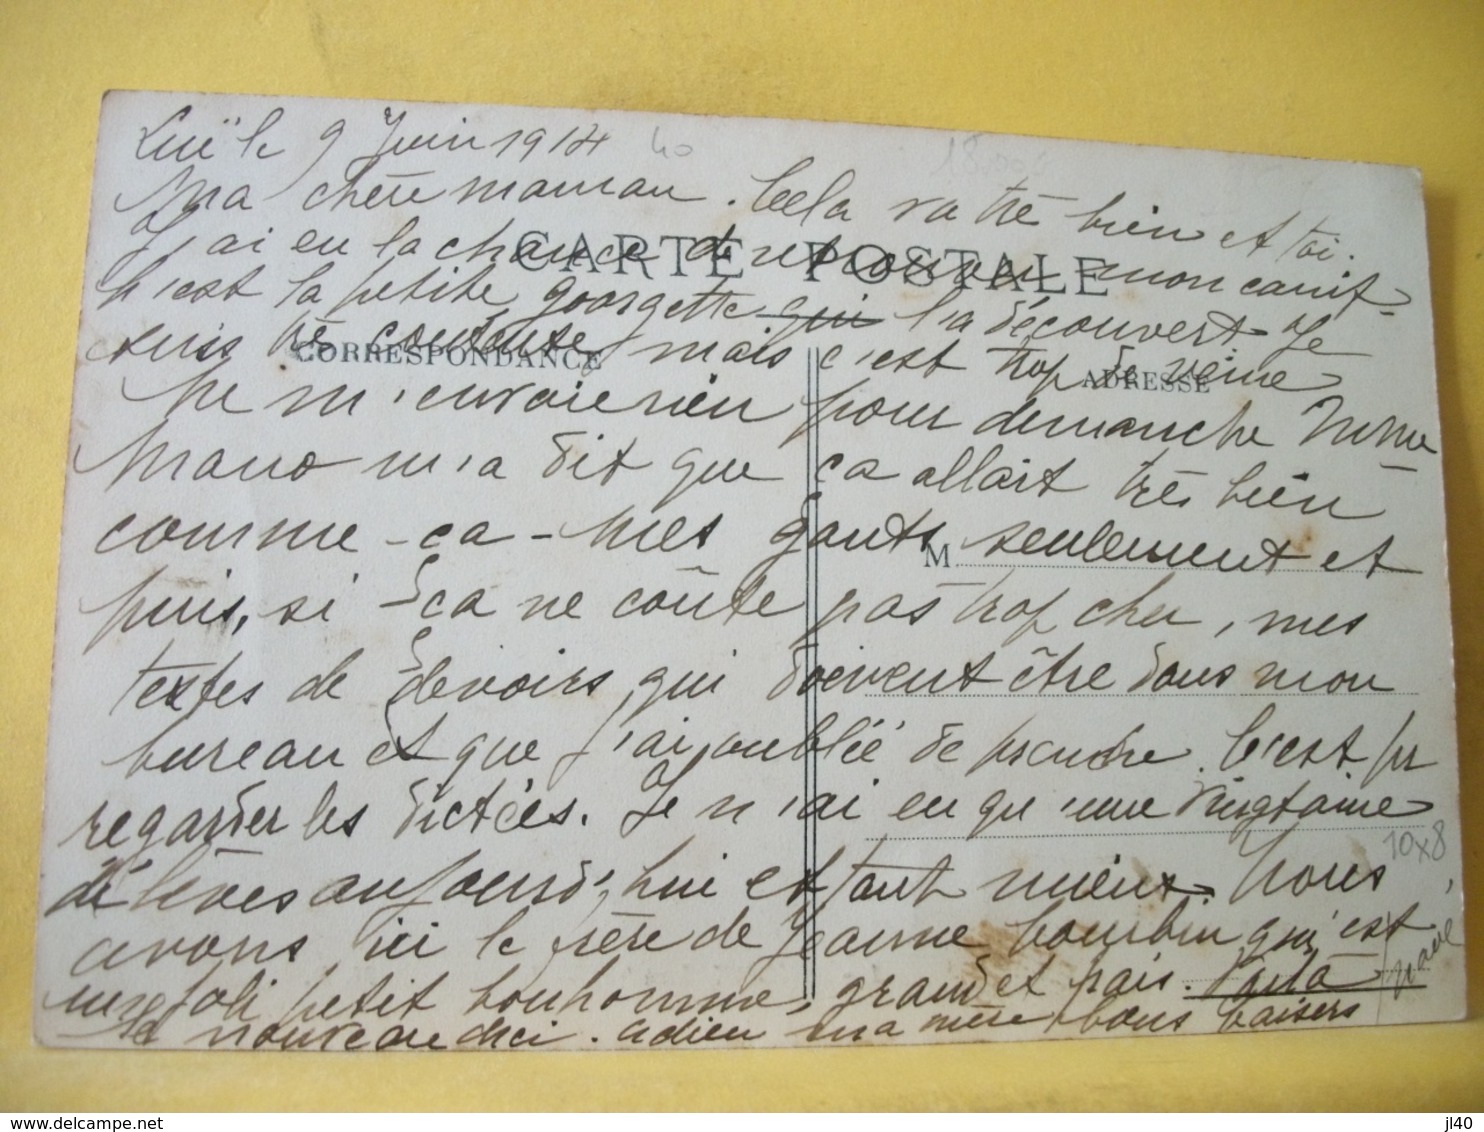 Luë le 9 Juin 1914
40
Ma chère maman. Cela va tré bien et toi.
J'ai eu la chance de retrouver mon canif.
CARTE POSTALE
c'est la petite georgette qui l'a découvert. Je
suis trè contente, mais c'est trop de veine
CORRESPONDANCE
ADRESSE
Ne m'envoie rien pour dimanche Mme
Mano m'a dit que ça allait très bien
comme-ça-mes gants seulement et
M
puis, si ça ne coûte pas trop cher, mes
textes de devoirs qui doivent être dans mon
bureau et que j'ai oubliée de prendre. C'est pr
regarder les dictées. Je n'ai eu qu'une vingtaine
10x8
d'élèves aujourd'hui et tant mieux. Nous
avons ici le frère de Jeanne Bourbin qui est
un joli petit bonhomme, grand et pair. Voilà
le nouveau d'ici. adieu ma mère bons baisers
jl40
delcampe.net